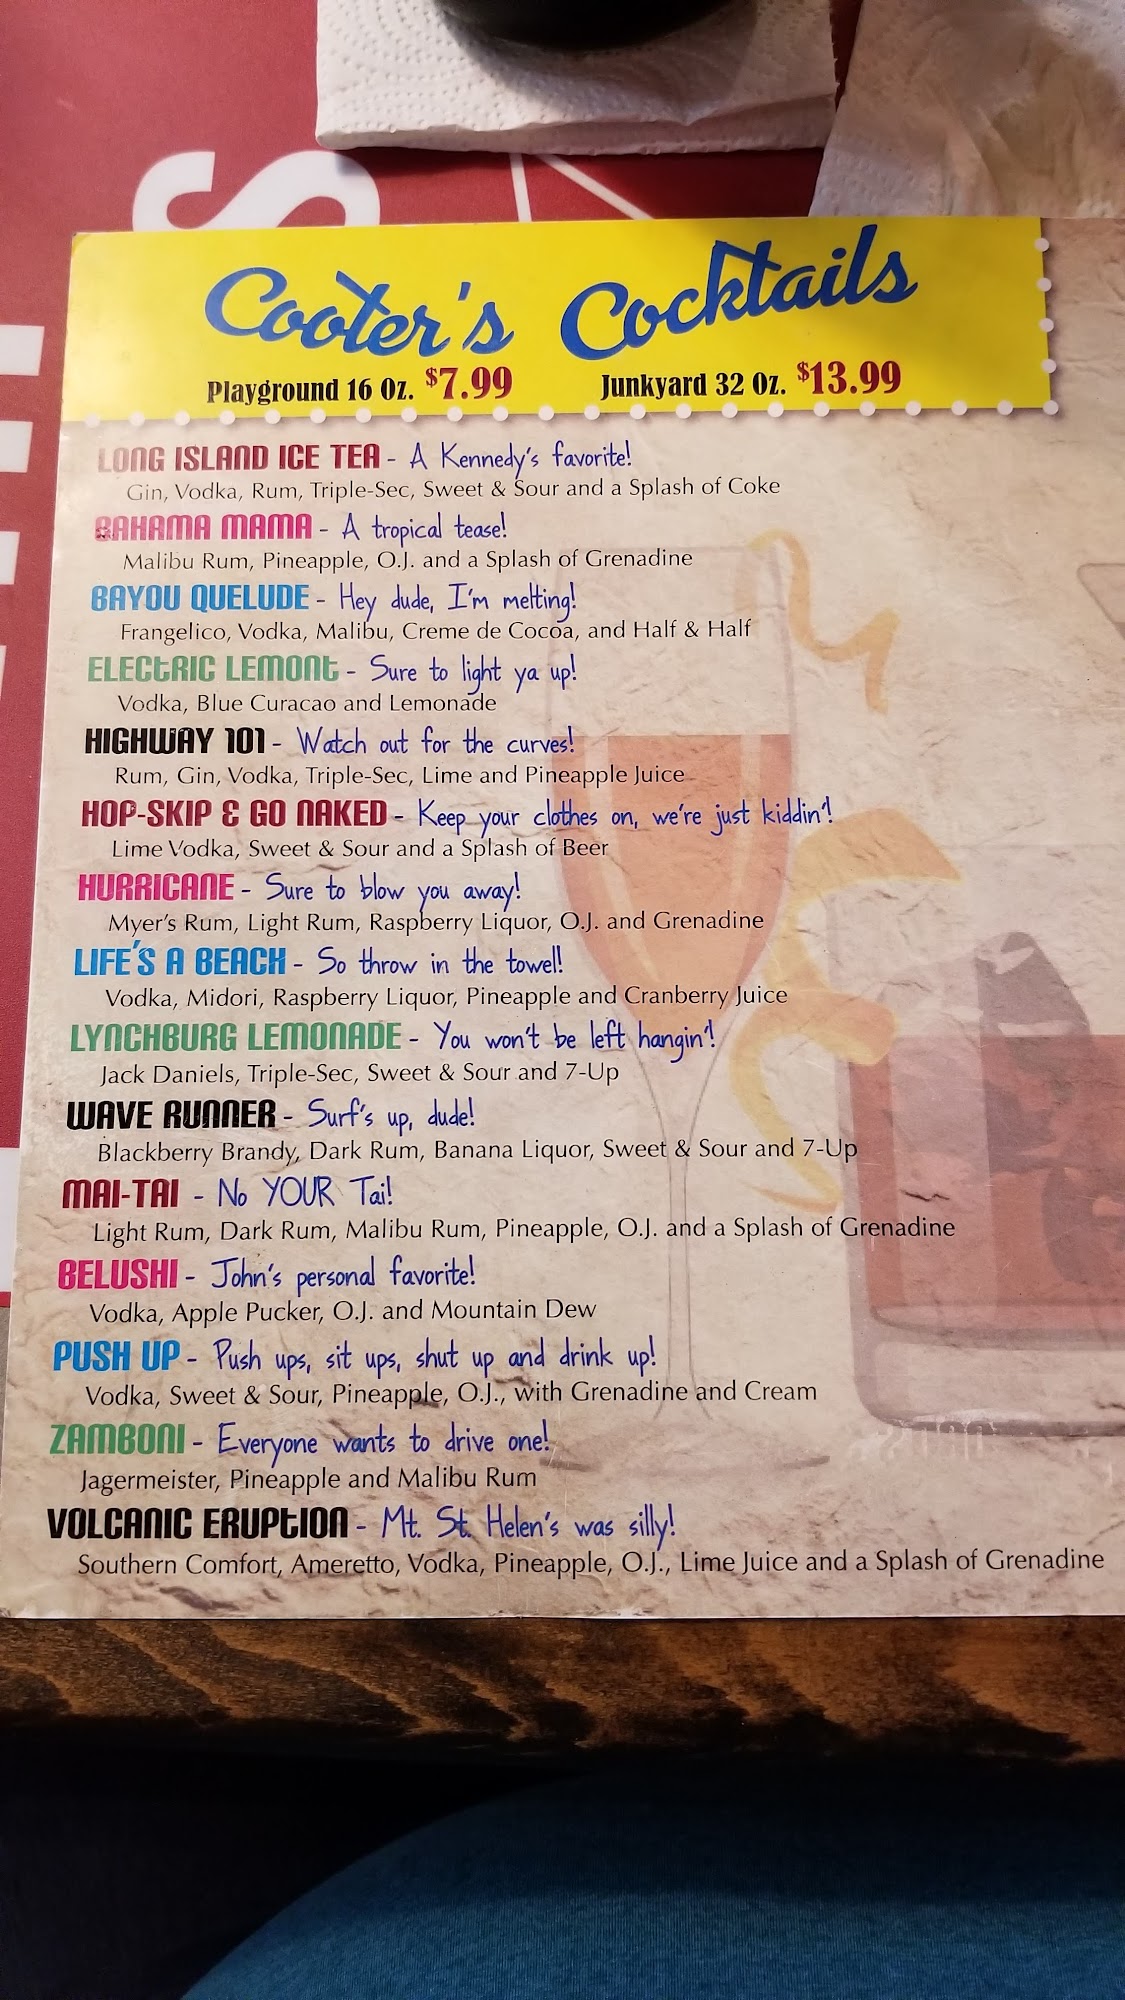 Cooter's Cocktails
Playground 16 Oz. $7.99 Junkyard 32 Oz. $13.99
LONG ISLAND ICE TEA - A Kennedy's favorite!
Gin, Vodka, Rum, Triple-Sec, Sweet & Sour and a Splash of Coke
BAHAMA MAMA - A tropical tease!
Malibu Rum, Pineapple, O.J. and a Splash of Grenadine
BAYOU QUELUDE - Hey dude, I'm melting!
Frangelico, Vodka, Malibu, Creme de Cocoa, and Half & Half
ELECTRIC LEMONT - Sure to light ya up!
Vodka, Blue Curacao and Lemonade
HIGHWAY 101 - Watch out for the curves!
Rum, Gin, Vodka, Triple-Sec, Lime and Pineapple Juice
HOP-SKIP & GO NAKED - Keep your clothes on, we're just kiddin'!
Lime Vodka, Sweet & Sour and a Splash of Beer
HURRICANE - Sure to blow you away!
Myer's Rum, Light Rum, Raspberry Liquor, O.J. and Grenadine
LIFE'S A BEACH - So throw in the towel!
Vodka, Midori, Raspberry Liquor, Pineapple and Cranberry Juice
LYNCHBURG LEMONADE - You won't be left hangin'!
Jack Daniels, Triple-Sec, Sweet & Sour and 7-Up
WAVE RUNNER - Surf's up, dude!
Blackberry Brandy, Dark Rum, Banana Liquor, Sweet & Sour and 7-Up
MAI-TAI - No YOUR Tai!
Light Rum, Dark Rum, Malibu Rum, Pineapple, O.J. and a Splash of Grenadine
BELUSHI - John's personal favorite!
Vodka, Apple Pucker, O.J. and Mountain Dew
PUSH UP - Push ups, sit ups, shut up and drink up!
Vodka, Sweet & Sour, Pineapple, O.J., with Grenadine and Cream
ZAMBONI - Everyone wants to drive one!
Jagermeister, Pineapple and Malibu Rum
VOLCANIC ERUPTION - Mt. St. Helen's was silly!
Southern Comfort, Ameretto, Vodka, Pineapple, O.J., Lime Juice and a Splash of Grenadine